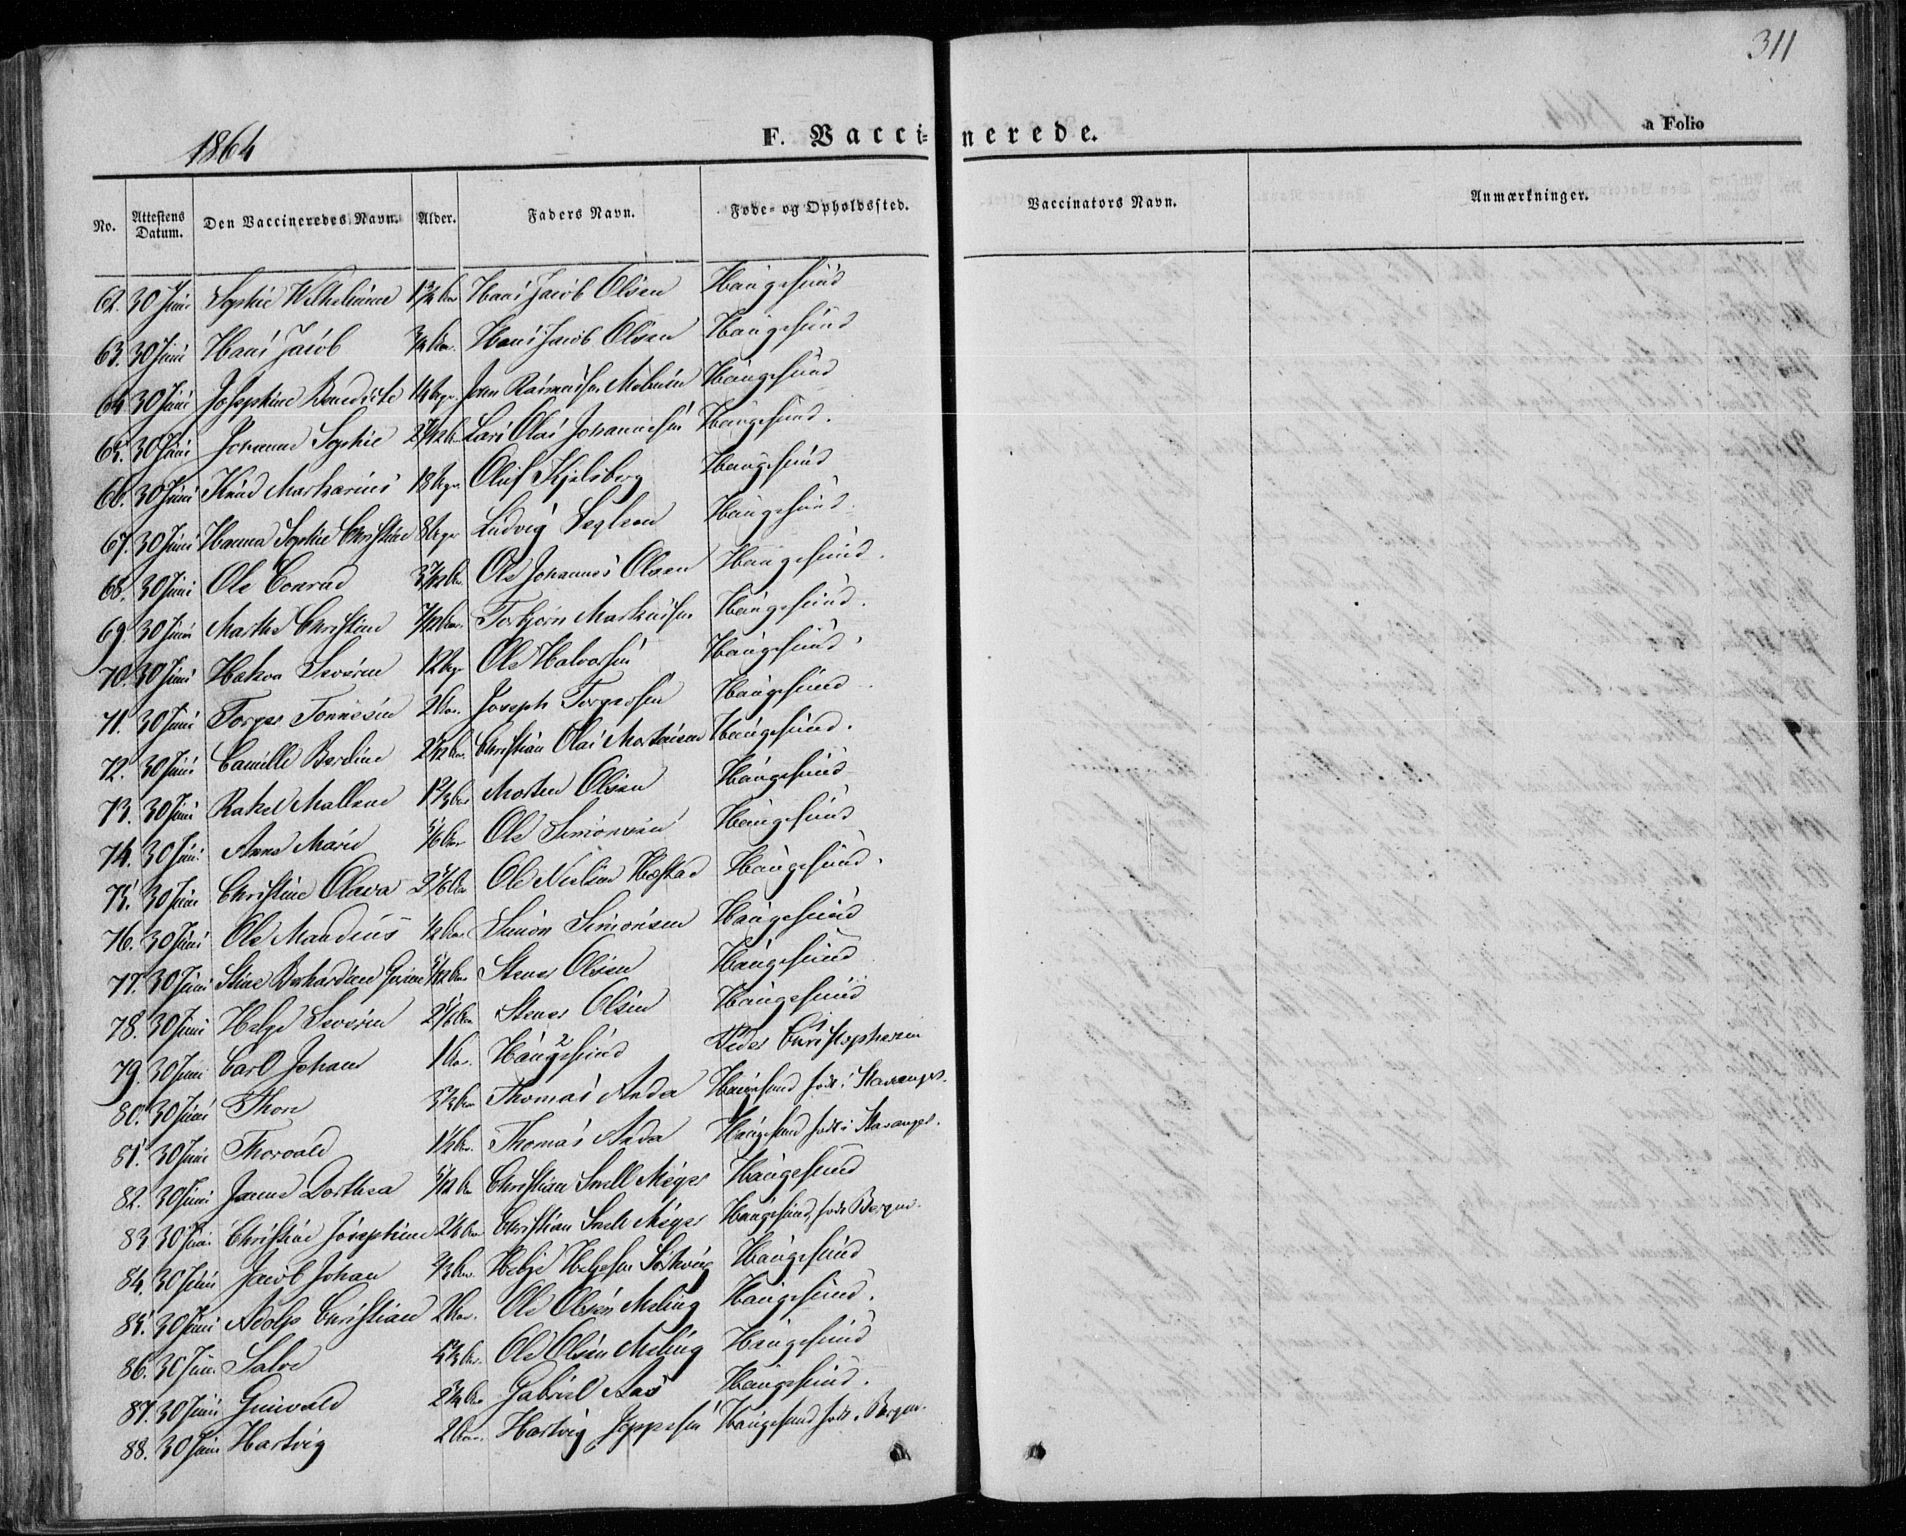 311
1864
F. Vaccinerede.
a Folio
No. Attestens Datum. Den Vaccineredes Navn. Alder. Faders Navn. Føde- og Opholdssted. Vaccinators Navn. Anmærkninger.
62. 30 Juni Sophie Wilhelmine 1¾ Aar Hans Jacob Olsen Haugesund
63. 30 Juni Hans Jacob ¾ Aar. Hans Jacob Olsen Haugesund
64. 30 Juni Josephine Benedicte 14 Uger Rasmussen Haugesund
65. 30 Juni Johanne Sophie Lars Olai Johannesen Haugesund.
66. 30 Juni Knud Markarius 18 Uger Oluf Kjelsberg Haugesund
67. 30 Juni Hanna Sophie Christine 8 Uger Ludvig Haugesund.
68. 30 Juni Ole Conrad Ole Johannes Olsen Haugesund.
69. 30 Juni Marthe Christine 7/12 Aar. Torbjørn Markussen Haugesund.
70. 30 Juni Hakon Severin 12 Uger Ole Halvorsen Haugesund.
71. 30 Juni Torger Tønnesen 2 Aar. Joseph Torgersen Haugesund.
72. 30 Juni Camille Berdine Christian Olai Mortensen Haugesund.
73. 30 Juni Rakel Mallene 1⅔ Aar Morten Olsen Haugesund
74. 30 Juni Anne Marie 5/6 Aar Ole Simonsen Haugesund
75. 30 Juni Christine Olava Ole Nielsen Haugesund.
76. 30 Juni Ole Mandius ½ Aar. Simon Simonsen Haugesund
77. 30 Juni Stine 5/12 Aar Stener Olsen Haugesund
78. 30 Juni Helge Severin Stener Olsen Haugesund
79. 30 Juni Carl Johan 1 Aar. 2 Haugesund 1 Peder Christophersen
80. 30 Juni Thora Thomas Anda Haugesund født i Stavanger.
81. 30 Juni Thorvald 1½ Aar. Thomas Anda Haugesund født i Stavanger.
82. 30 Juni Janna Dorthea 5/12 Aar Christian Snell Meyer Haugesund
83 30 Juni Christine Josephine Christian Snell Meyer Haugesund, født Bergen.
84. 30 Juni Jacob Johan Helge Helgesen Haugesund
85. 30 Juni Adolf Christian 2 Aar. Ole Olsen Meling Haugesund.
86. 30 Juni Salve Ole Olsen Meling Haugesund
87. 30 Juni Gunvald 2¾ Aar Gabriel Aas Haugesund.
88. 30 Juni Hartvig 2 Aar. Hartvig Jeppesen Haugesund født i Bergen.